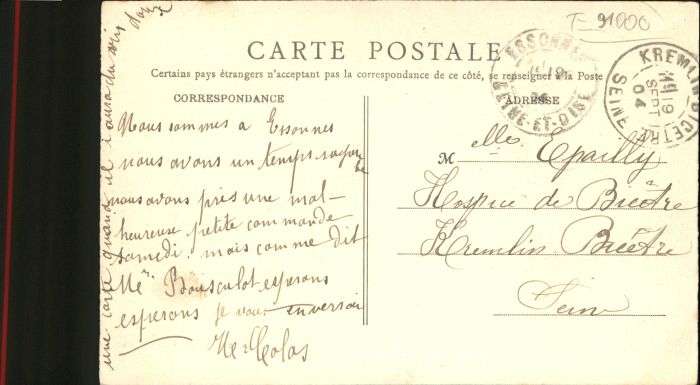 T_91000
CARTE POSTALE
Certains pays étrangers n'acceptant pas la correspondance de ce côté, se renseigner à la Poste
CORRESPONDANCE
ADRESSE
ESSONNES
SEINE-ET-OISE
KREMLIN-BICETRE
SEINE
19
SEPT
04
Nous sommes a Essonnes
nous avons un temps
nous avons pris une mal-
heureuse petite commande
samedi. mais comme dit
Me. Bousculot esperons
esperons je vous enverrai
une carte quand il
M elle Epailly
Hospice de Bicêtre
Kremlin Bicêtre
Seine